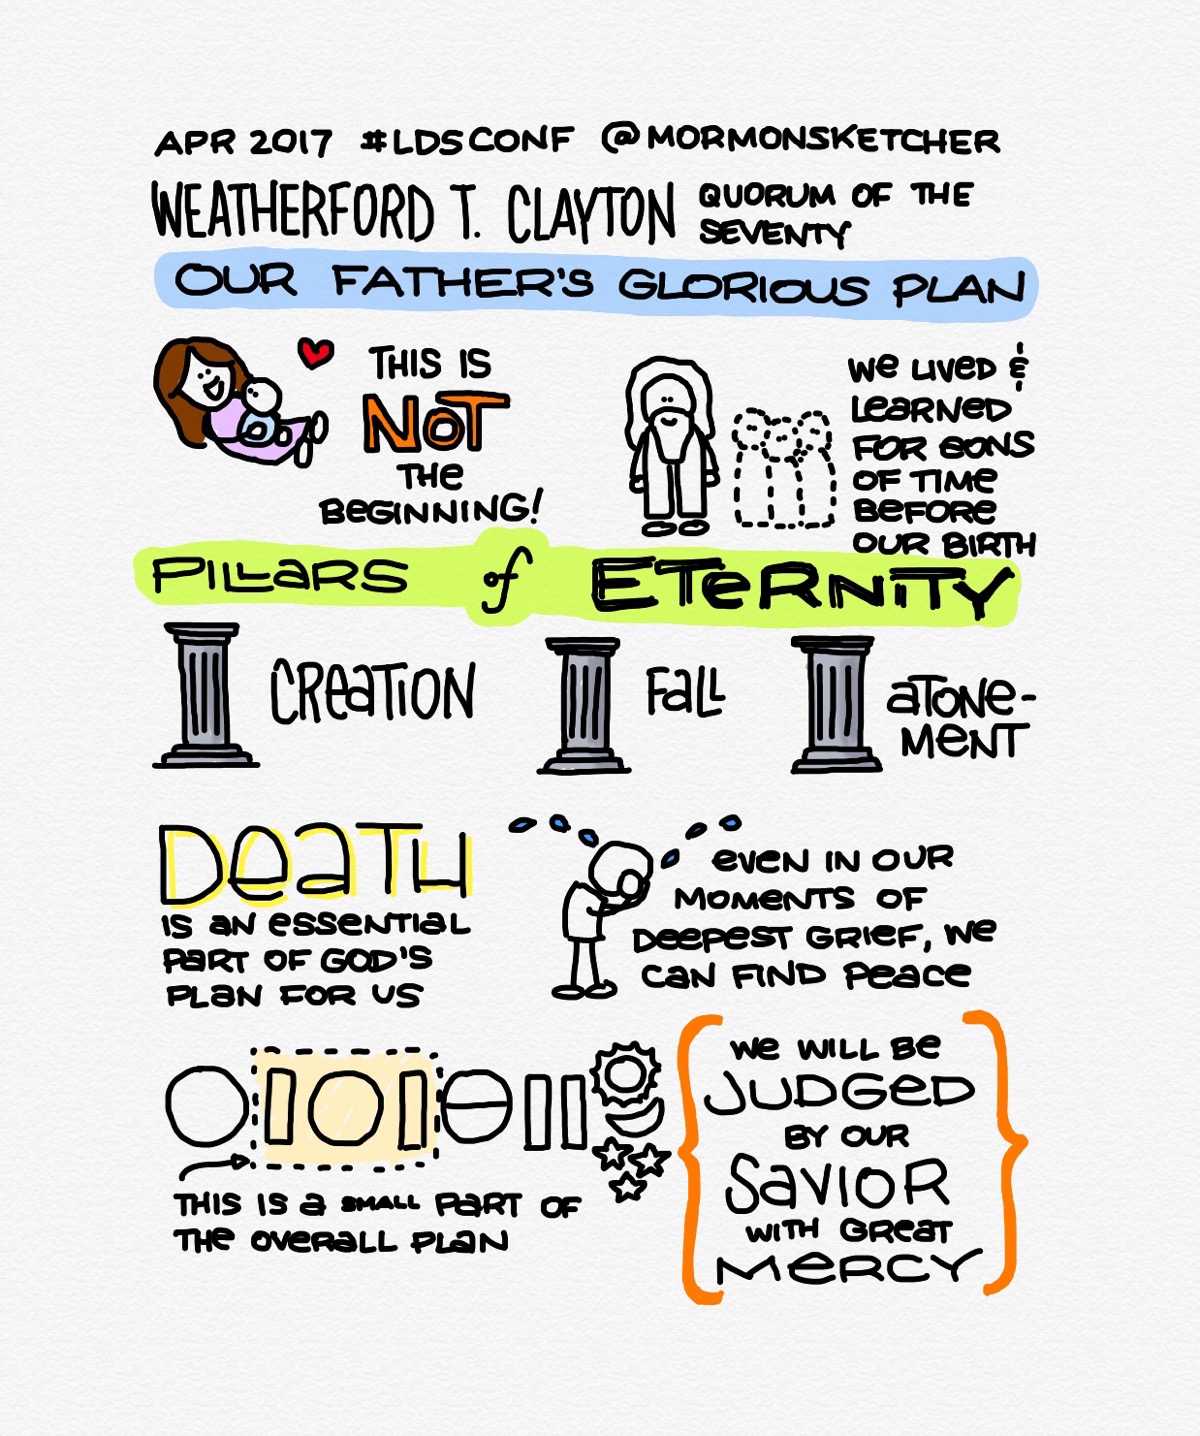 APR 2017 #LDSCONF @MORMONSKETCHER
WEATHERFORD T. CLAYTON
QUORUM OF THE
SEVENTY
OUR FATHER'S GLORIOUS PLAN
THIS IS
NOT
THE
BEGINNING!
WE LIVED &
LEARNED
FOR EONS
OF TIME
BEFORE
OUR BIRTH
PILLARS of ETERNITY
CREATION
FALL
ATONE-
MENT
DEATH
IS AN ESSENTIAL
PART OF GOD'S
PLAN FOR US
EVEN IN OUR
MOMENTS OF
DEEPEST GRIEF, WE
CAN FIND PEACE
THIS IS A SMALL PART OF
THE OVERALL PLAN
WE WILL BE
JUDGED
BY OUR
SAVIOR
WITH GREAT
MERCY